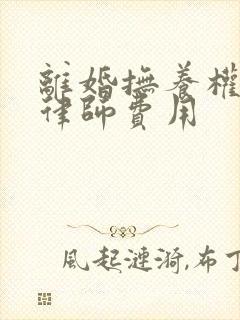 離婚撫養權
律師費用
風起漣漪,布丁